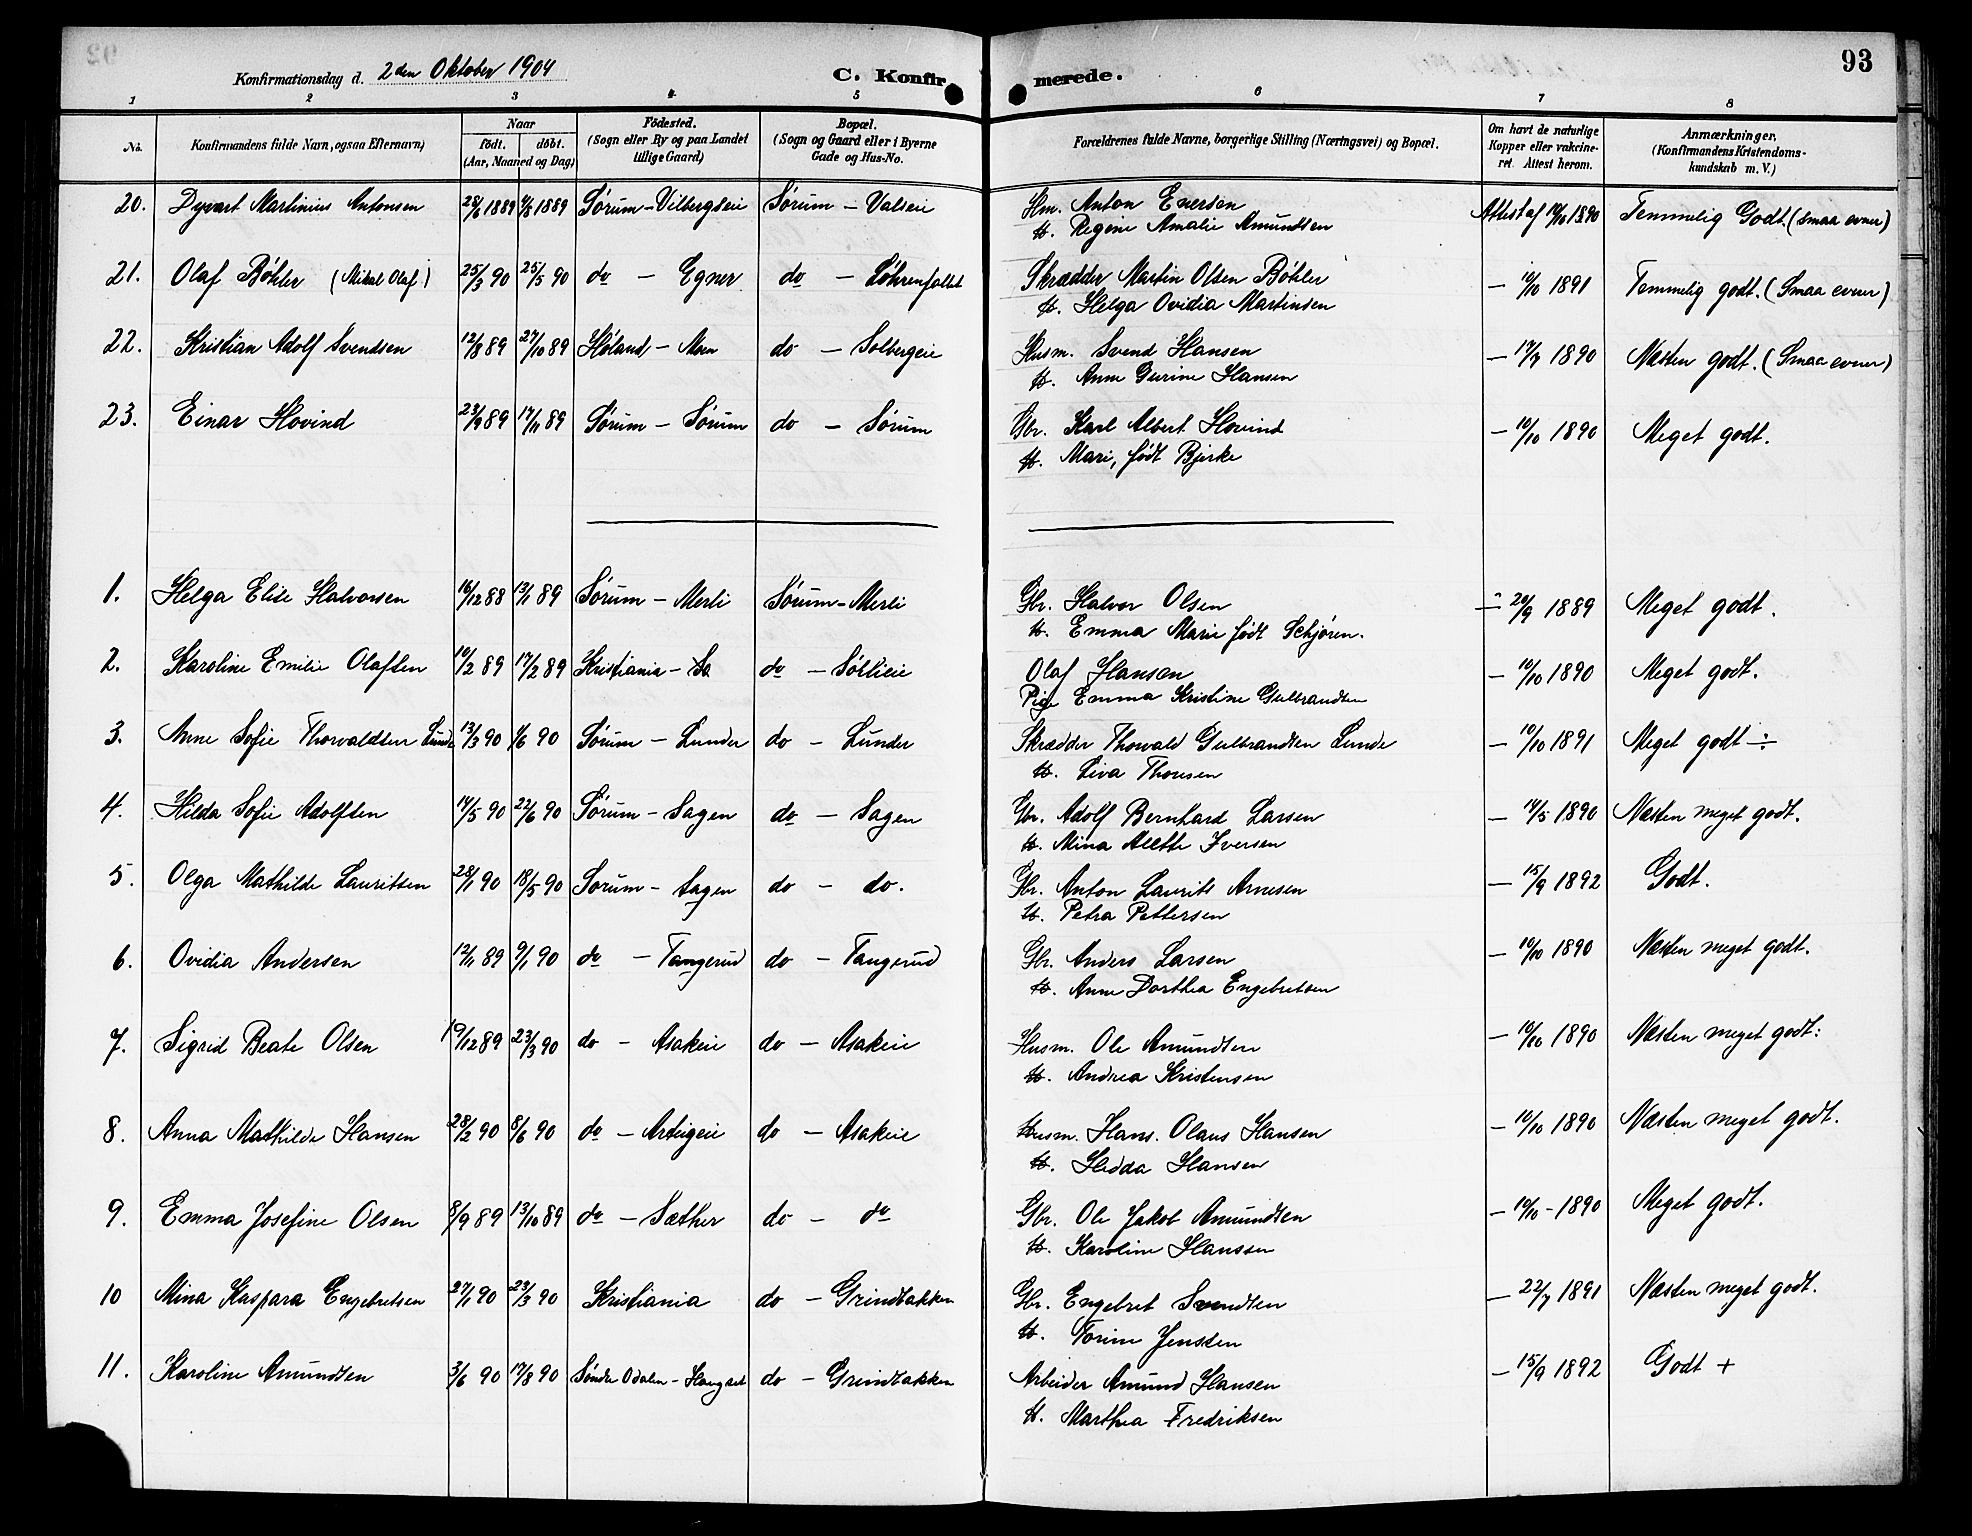 93
Konfirmationsdag d. 2den Oktober 1904 C. Konfirmerede.
1 2 3 4 5 6 7 8
No. Konfirmandens fulde Navn, ogsaa Efternavn) Naar født. døbt. (Aar, Maaned og Dag) Fødested. (Sogn eller By og paa Landet tillige Gaard) Bopæl. (Sogn og Gaard eller i Byerne Gade og Hus-No. Forældrenes fulde Navne, borgerlige Stilling (Næringsvei) og Bopæl. Om havt de naturlige Kopper eller vakcineret. Attest herom. Anmærkninger. (Konfirmandens Kristendomskundskab m. V.)
20. Dyvart Martinius Antonsen 28/6 1889 4/8 1889 Sørum - Vilbergseie Sørum - Valseie Hm. Anton Enersen Attest af 10/10 1890 Temmelig Godt. (smaa evner)
H. Regine Amalie Amundsen
21. Olaf Bøhler (Mikal Olaf) 25/3 90 25/5 90 do - Egner do - Løhrenfaldet Skrædder Martin Olsen Bøhler - 10/10 1891 Temmelig godt. (Smaa evner)
H. Helga Ovidia Martinsen
22. Kristian Adolf Svendsen 12/8 89 27/10 89 Høland - Moen do - Solbergeie Husm. Svend Hansen - 17/7 1890 Næsten godt. (Smaa evner)
H. Anne Gurine Hansen
23. Einar Hovind 23/9 89 17/11 89 Sørum - Sørum do - Sørum Gbr. Karl Albert Hovind - 10/10 1890 Meget godt.
H. Mari, født Bjerke
1. Helga Elise Halvorsen 16/12 88 13/1 89 Sørum - Merli Sørum - Merli Gbr. Halvor Olsen - 20/9 1889 Meget godt.
H. Emma Marie født Schjøren.
2. Karoline Emilie Olafsen 10/2 89 17/2 89 Kristiania - do - Sørlieie Olaf Hansen - 10/10 1890 Meget godt.
Pige Emma Kristine Gulbrandsen
3. Anne Sofie Thorvaldsen Lunde 13/3 90 1/6 90 Sørum - Lunder do - Lunder Skrædder Thorvald Gulbrandsen Lunde - 10/10 1891 Meget godt ÷
H. Liva Thoresen
4. Hilda Sofie Adolfsen 14/5 90 22/6 90 Sørum - Sagen do - Sagen Gbr. Adolf Bernhard Larsen - 14/5 1890 Næsten meget godt.
H. Mina Alette Iversen
5. Olga Mathilde Lauritsen 28/1 90 18/5 90 Sorum - Sagen do - do. Gbr. Anton Laurits Arnesen - 15/9 1892 Godt.
H. Petra Pettersen
6. Ovidia Andersen 12/11 89 9/1 90 do - Tangerud do - Tangerud Gbr. Anders Larsen - 10/10 1890 Næsten meget godt.
H. Anne Dorthea Engebretsen
7. Sigrid Beate Olsen 19/12 89 23/3 90 do - Asakeie do - Asakeie Husm. Ole Amundsen - 10/10 1890 Næsten meget godt:
H. Andrea Kristensen
8. Anna Mathilde Hansen 28/2 90 8/6 90 do - Arteigeie do - Asakeie Husm. Hans. Olaus Hansen - 10/10 1890 Næsten meget godt.
H. Hedda Hansen
9. Emma Josefine Olsen 8/9 89 13/10 89 do - Sæther do - do Gbr. Ole Jakob Amundsen - 10/10 - 1890 Meget godt.
H. Karoline Hanssen
10 Mina Kaspara Engebretsen 27/1 90 23/3 90 Kristiania do - Grindbakken Gbr. Engebret Svendsen - 22/7 1891 Næsten meget godt.
H. Torine Jenssen
11. Karoline Amundsen 3/6 90 17/8 90 Søndre Odalen - do - Grindbakken Arbeider Amund Hansen - 15/9 1892 Godt +
H. Marthea Fredriksen